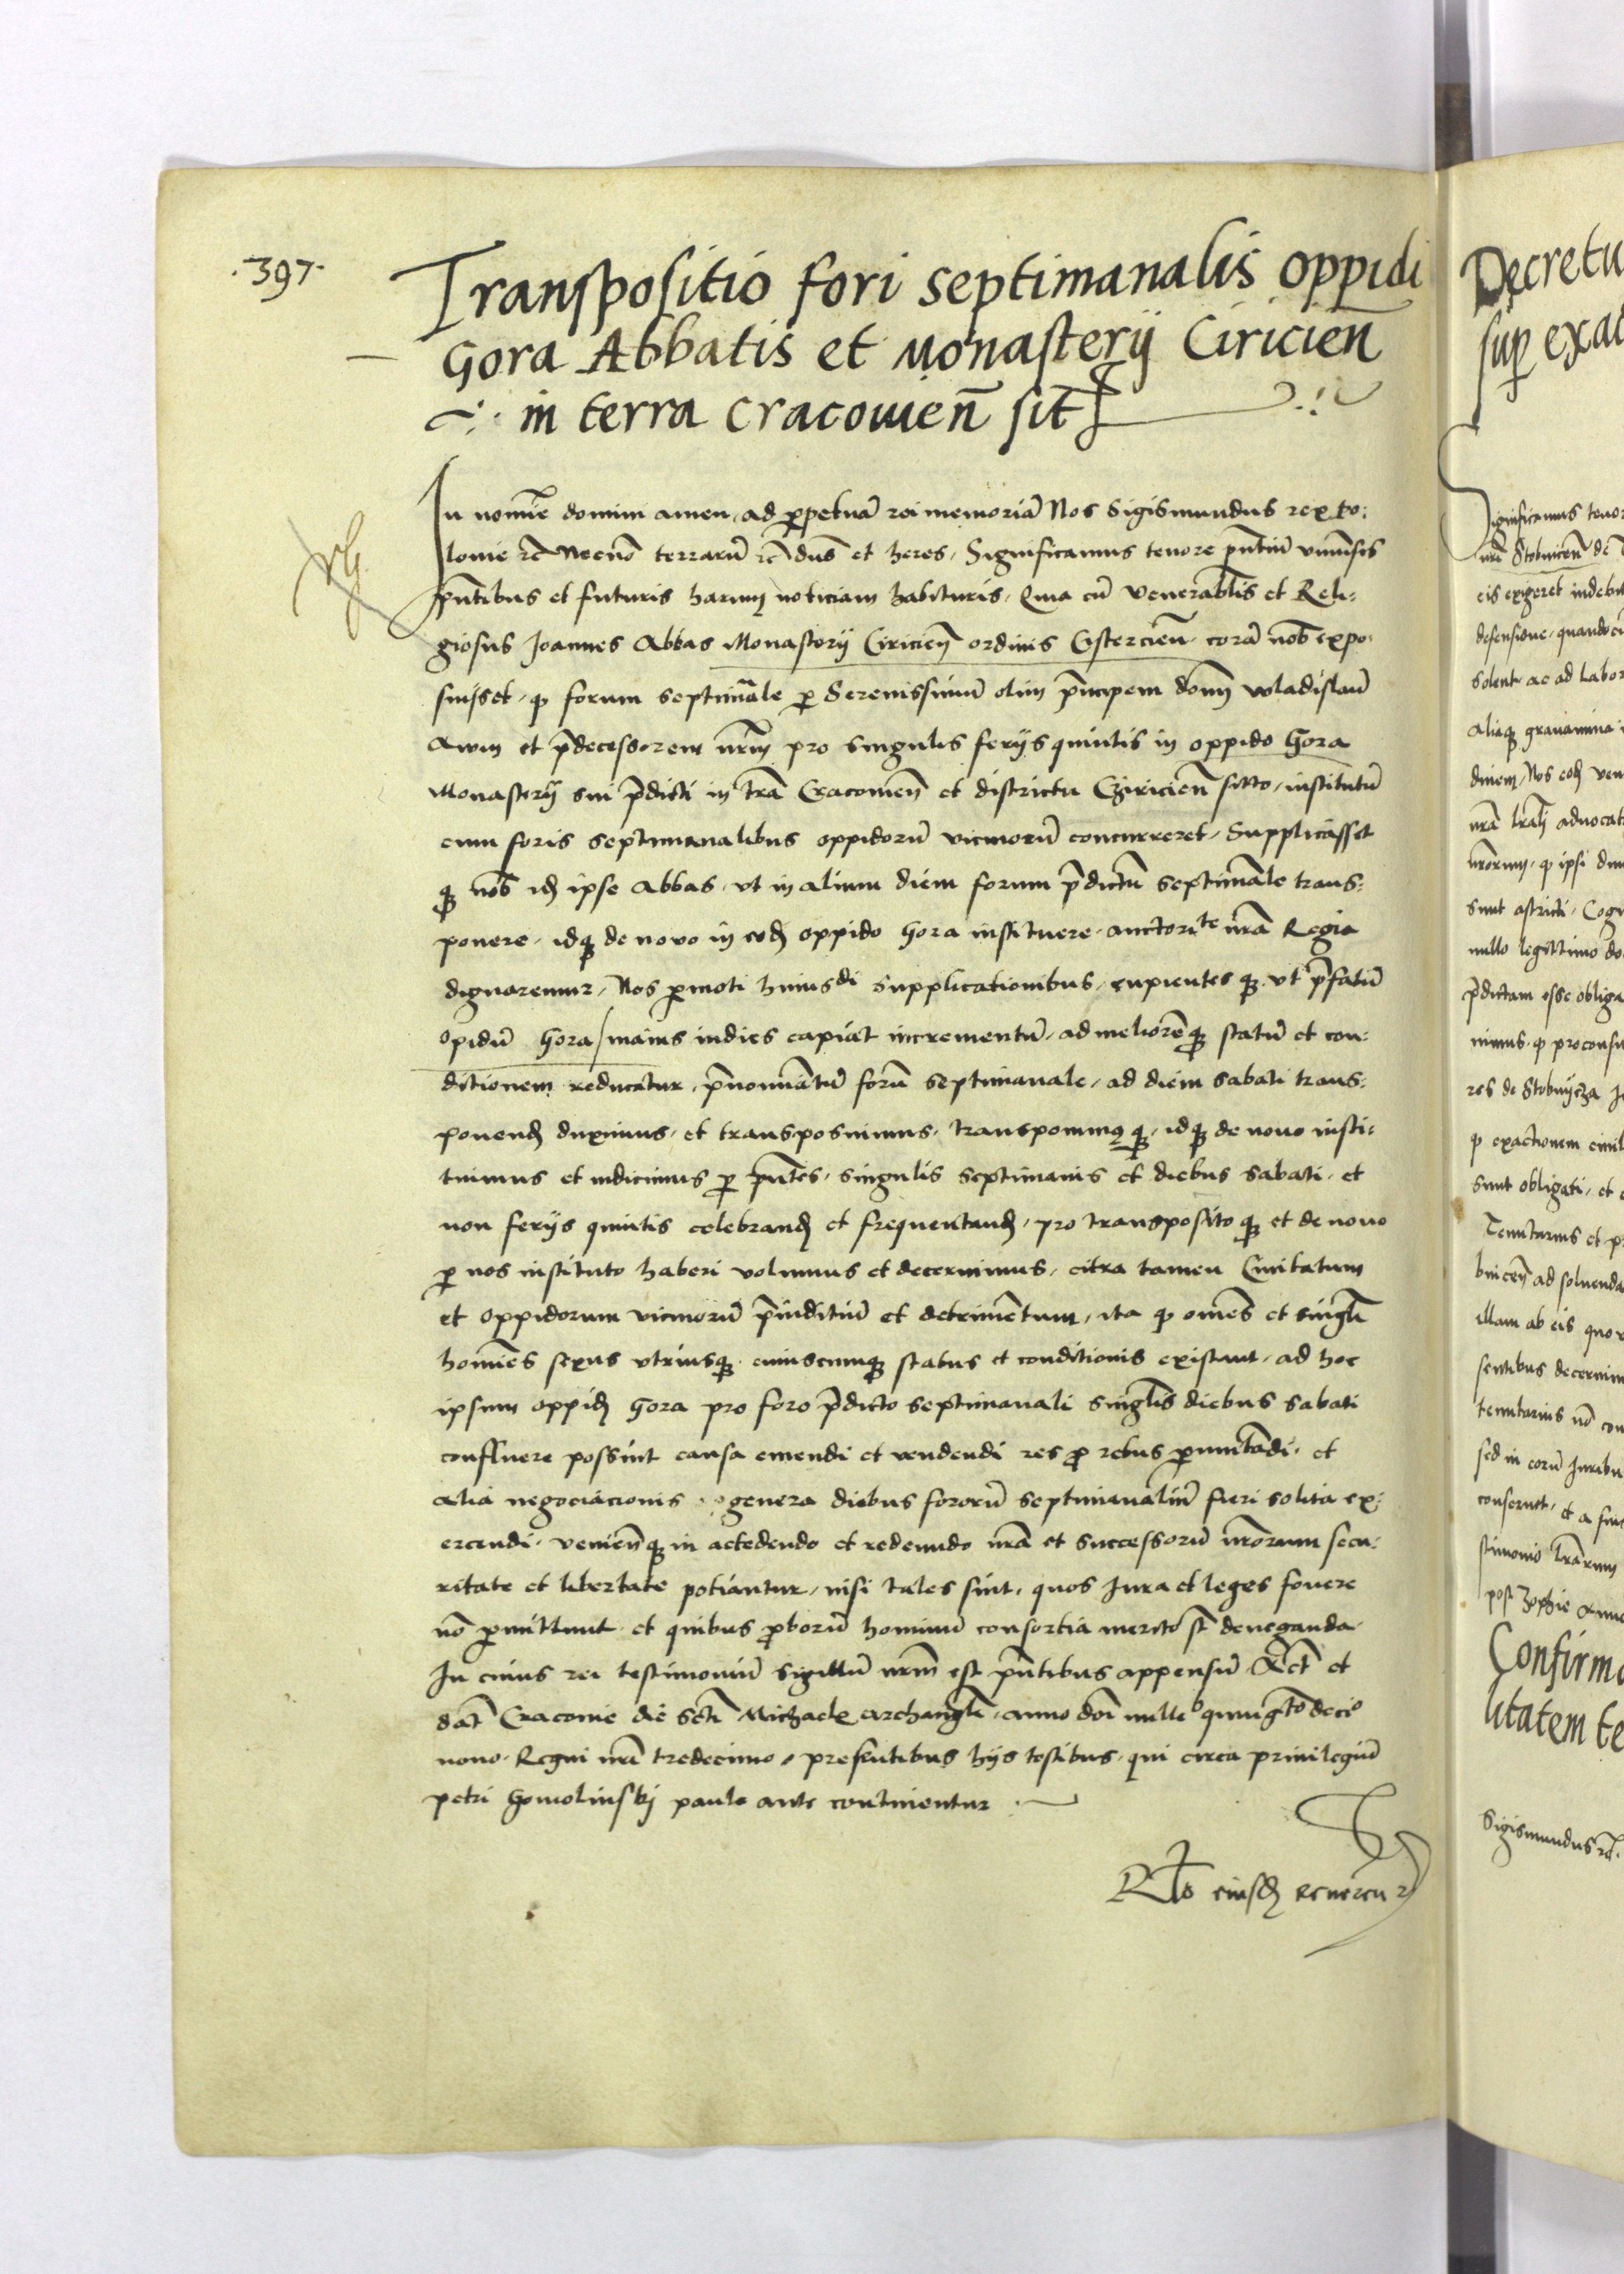 .397.
Transpositio fori septimanalis oppidi
Gora Abbatis et Monasterij Ciricień
in terra Cracouień sit
In nomīe domini amen, ad ꝑpetuā rei memoriā Nos Sigismundus rex Po:
lonie rc̄ Necnō terrarū rc̄ dn̄s et heres, Significamus tenore pn̄tiū vniūsis
pn̄tibus et futuris harum noticiam habituris, Quia cū Venerablīs et Reli:
giosus Joannes Abbas Monasterij Ciricień ordinis Cistercień corā nob̄ expo
suisset, ꝙ forum septimāale ꝑ Serenissimū olim pn̄cipem domī wladislaū
Auum et p̄decessorem nr̄m pro singulis ferijs quintis in oppido Gora
Monasterij sui p̄dicti in tr̄a Cracouień et districtu Cziricień sitto, institutū
cum foris septimanalibus oppidorū vicinorū concurreret, Supplicasset
qꝫ nob̄ idꝫ ipse Abbas, vt in alium diem forum p̄dictū septimāle trans:
ponere, idqꝫ de nouo in eodꝫ oppido Gora instituere auctorite nr̄a Regia
dignaremur, Nos ꝑmoti huiusdi supplicationibus, cupientes qꝫ vt p̄fatū
opidū Gora maius indies capiat incrementū, ad meliorēqꝫ statū et con:
ditionem reducatur, p̄nominatū forū septimanale, ad diem sabati trans:
ponendꝫ duximus, et transposuimus, transponimꝰ qꝫ, idqꝫ de nouo insti:
tuimus et indicimus ꝑ pn̄tes, singulis septimanis et diebus sabati, et
non ferijs quintis celebrandꝫ et frequentandꝫ, pro transposito qꝫ et de nouo
ꝑ nos instituto haberi volumus et decernimus, citra tamen Ciuitatum
et oppidorum vicinorū p̄iuditiū et detrimētum, ita ꝙ oīnes et singlī
homīes sexus vtriusqꝫ cuiuscumqꝫ status et conditionis existant, ad hoc
ipsum oppidꝫ Gora pro foro p̄dicto septimanali singlīs diebus sabati
confluere possint causa emendi et vendendi res ꝓ rebus ꝑmutādi, et
alia negociacionis genera diebus fororū septimanaliū fieri solita ex:
ercendi, venienꝭqꝫ in accedendo et redeundo nr̄a et successorū nr̄orum secu:
ritate et libertate potiantur, nisi tales sint, quos Jura et leges fouere
nō ꝑmittunt et quibus ꝓborū hominū consortia merito st̄ deneganda
In cuius rei testimoniū sigillū nr̄m est pn̄tibus appensū Act̄ et
dat̄ Cracouie die Sctī Michaelis archanglī, anno doī millo quingto deci
nono, Regni nr̄i tredecimo, presentibus hijs testibus, qui circa priuilegiū
petri Gomolinskj paulo ante continentur
Rlo eiusdꝫ
Decretu
sup exac
Significamus tenor
nr̄i Stobnicen̄ de
eis exigeret indebit
defensione, quandoci
solent ac ad labor
aliaqꝫ grauamina
diniem, Nos eodꝫ ven
nr̄orum, ꝙ ipsi
sunt astricti, Cogn
nullo legittimo do
p̄dictam esse obliga
nimus, ꝙ proconsu
res de Stobnijcza
ꝙ exactionem
sunt obligati, et
Tenutarius et p
bnicen̄ ad soluenda
illam ab eis quo
sentibus decernim
tenutarius nō con
sed in eorū Juribu
conseruet, et a
stimonio lr̄arum
post Zophie
Confirma
litatem te
Sigismundus rc̄